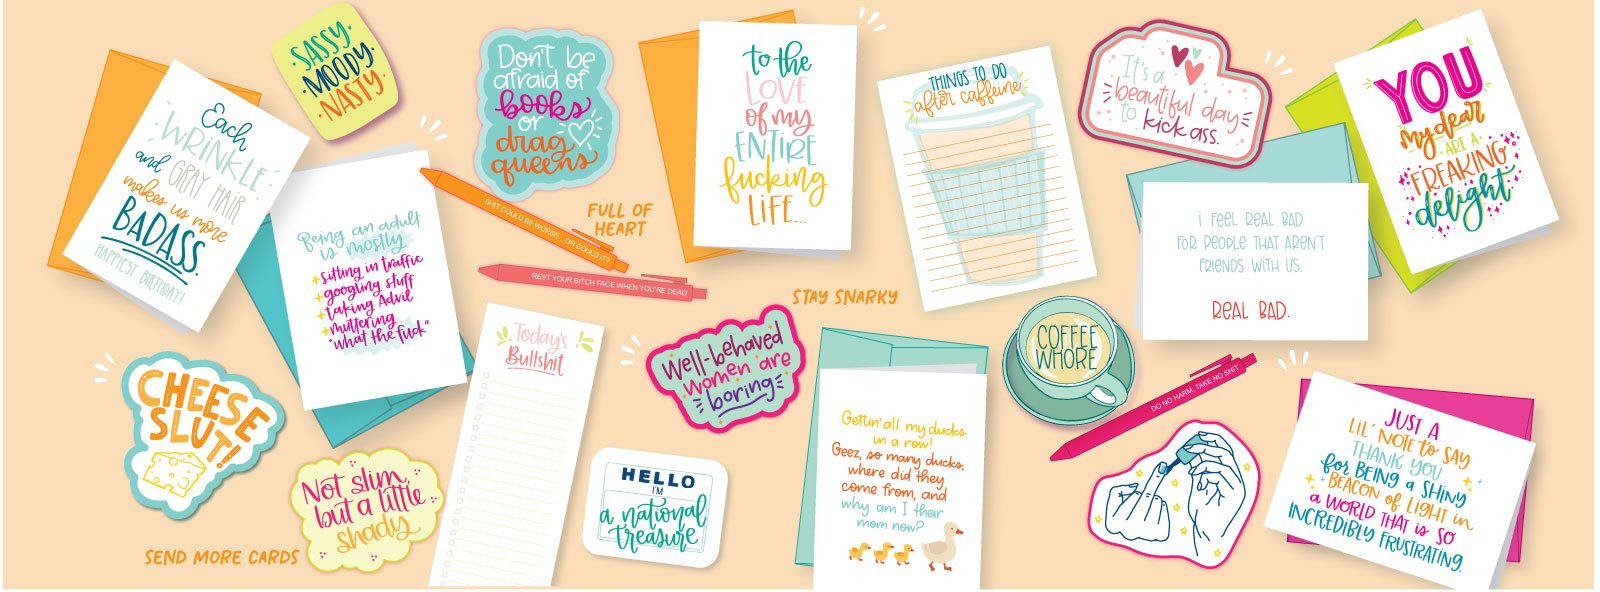 Each
WRINKLE
and GRAY HAIR
makes us more
BADASS.
HAPPIEST BIRTHDAY!
SASSY
MOODY
NASTY
Being an adult
is mostly
sitting in traffic
googling stuff
taking Advil
muttering
"what the fuck"
Don't be
afraid of
books
or
drag
queens
SHIT COULD BE WORSE... OR COULD IT?
REST YOUR BITCH FACE WHEN YOU'RE DEAD
FULL OF
HEART
to the
LOVE
of my
ENTIRE
fucking
LIFE...
THINGS TO DO
after caffeine
It's a
beautiful day
to kick ass.
i FEEL REAL BAD
FOR PEOPLE THAT AREN'T
FRIENDS WITH US.
REAL BAD.
YOU
my dear
ARE A
FREAKING
delight
STAY SNARKY
CHEESE
SLUT!
Not slim,
but a little
shady
SEND MORE CARDS
Today's
Bullshit
Well-behaved
women are
boring
HELLO
I'M
a national
treasure
Gettin' all my ducks
in a row!
Geez, so many ducks,
where did they
come from, and
why am I their
mom now?
COFFEE
WHORE
DO NO HARM. TAKE NO SHIT
JUST A
LIL' NOTE TO SAY
THANK YOU
for BEING A SHINY
BEACON OF LIGHT in
a WORLD THAT is SO
INCREDIBLY FRUSTRATING.